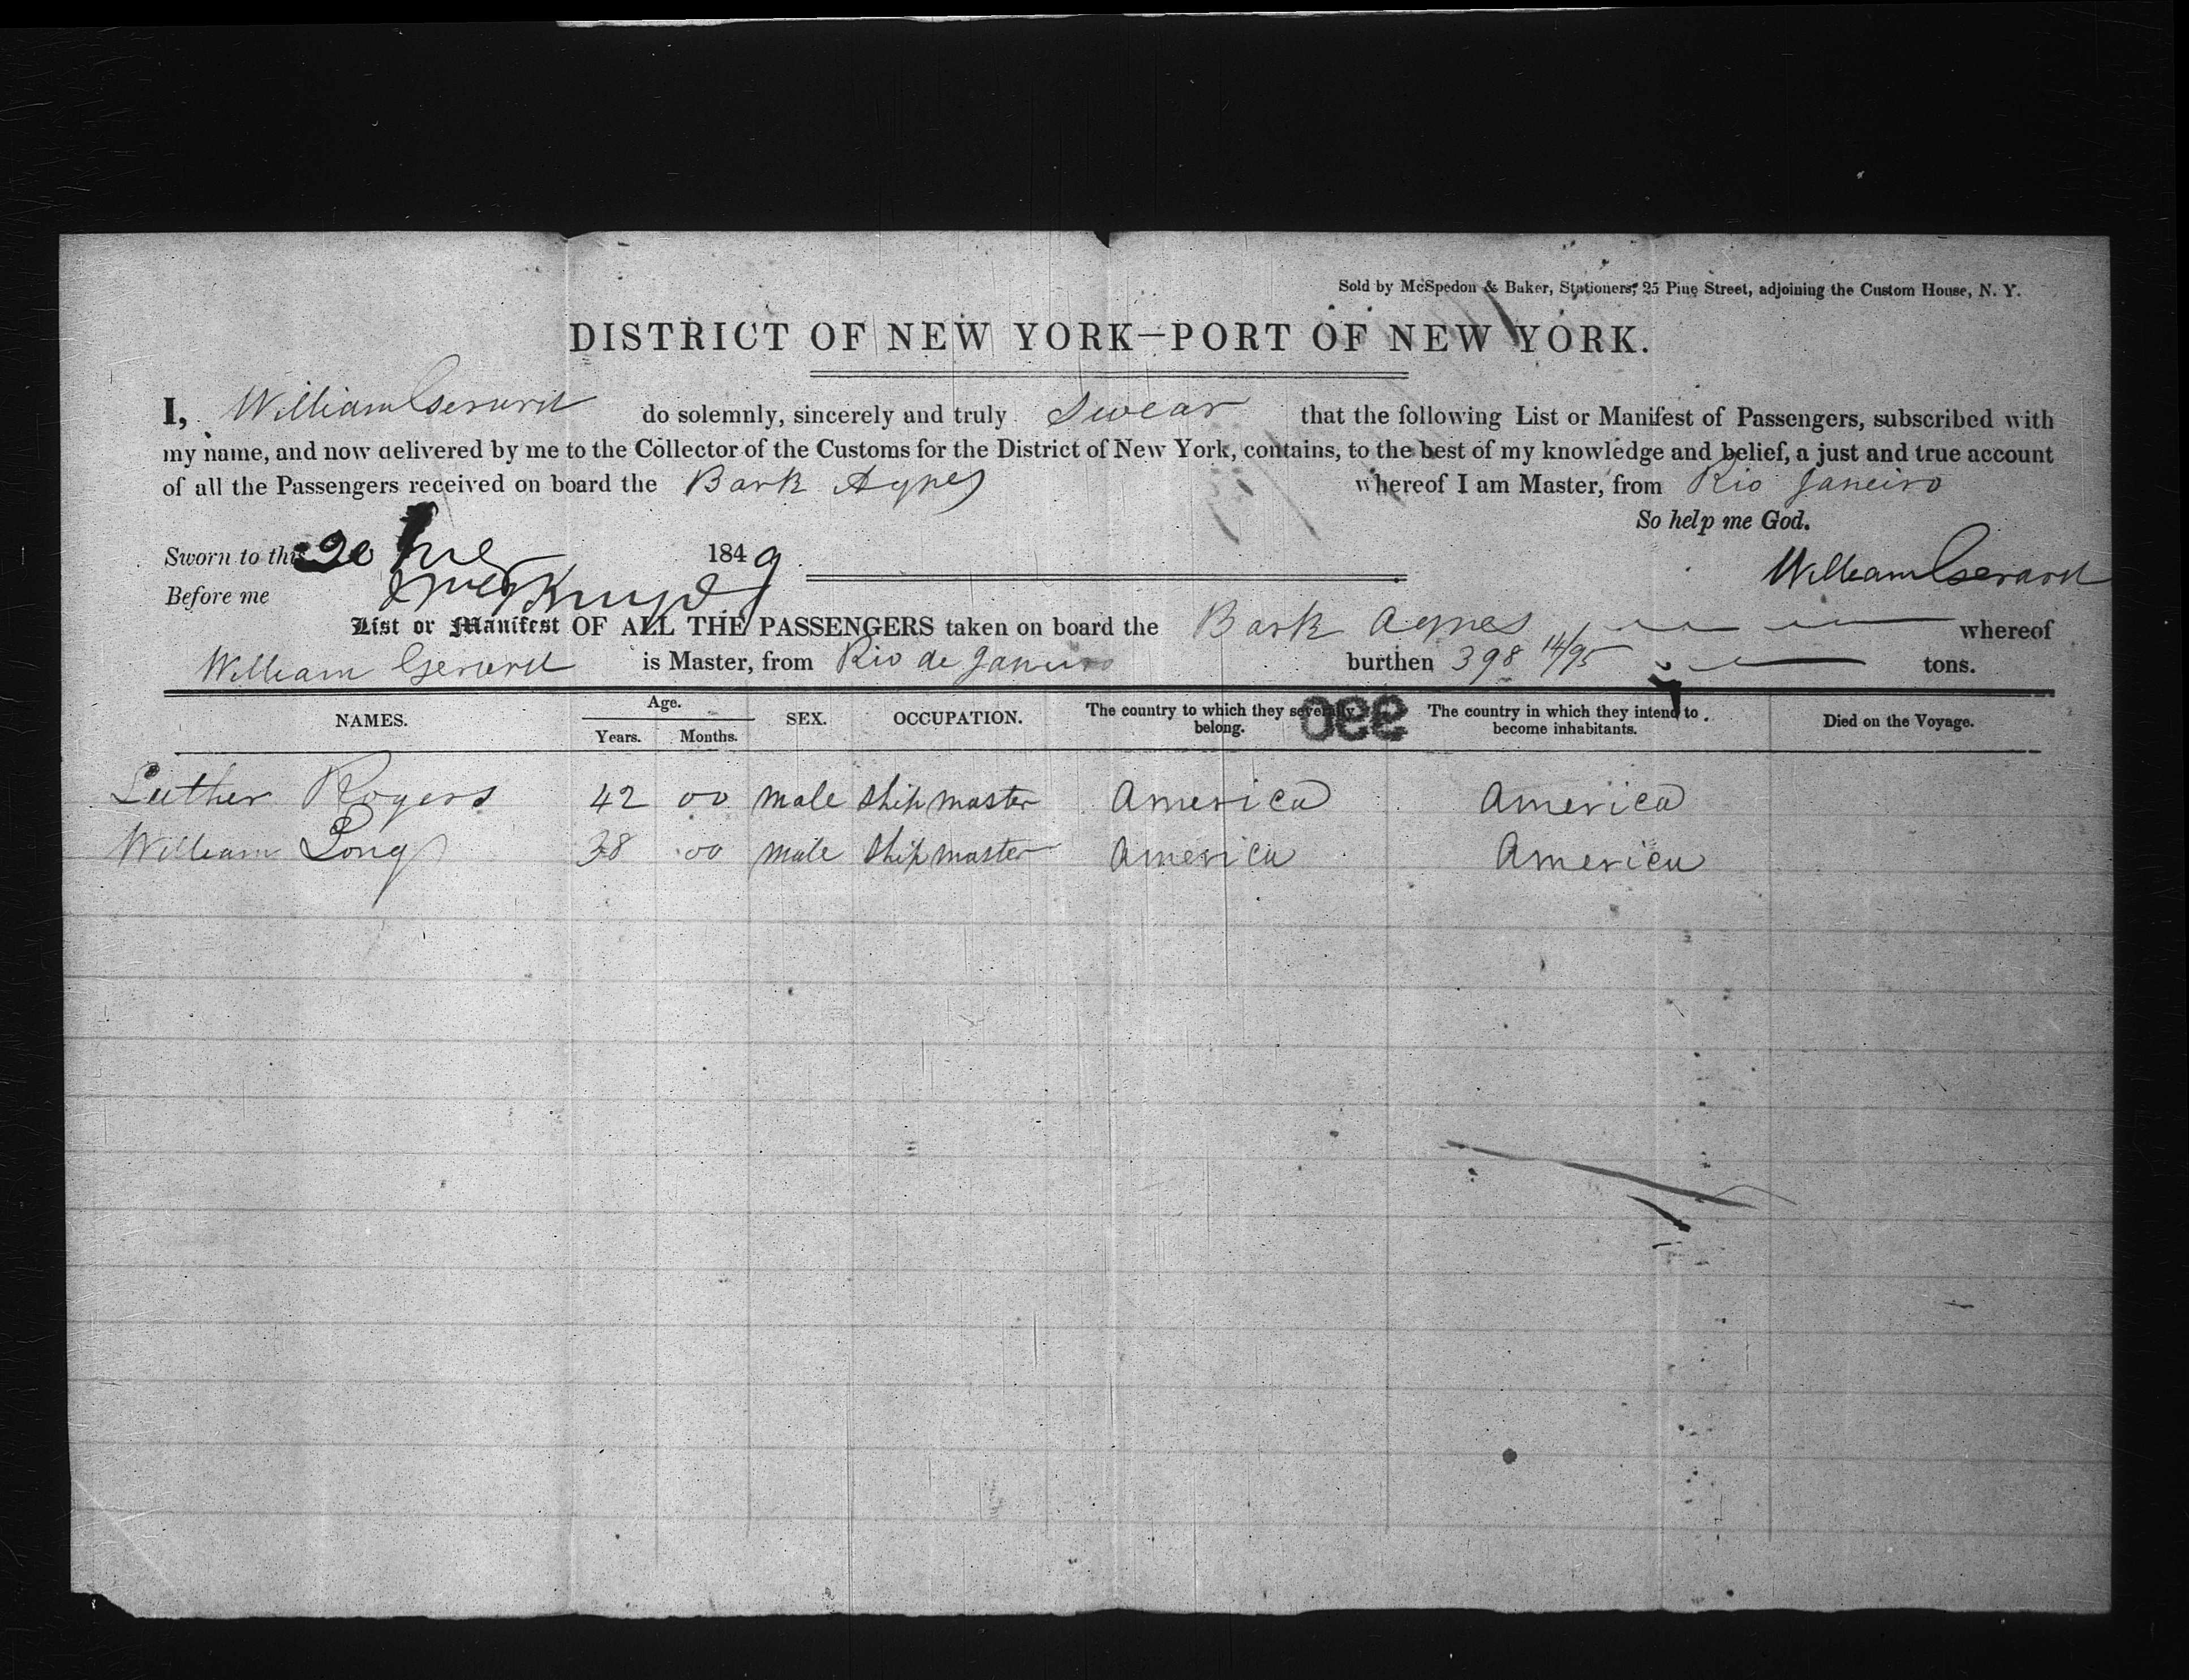 Sold by McSpedon & Baker, Stationers, 25 Pine Street, adjoining the Custom House, N. Y.
DISTRICT OF NEW YORK—PORT OF NEW YORK.
I, William Gerard do solemnly, sincerely and truly Swear that the following List or Manifest of Passengers, subscribed with
my name, and now delivered by me to the Collector of the Customs for the District of New York, contains, to the best of my knowledge and belief, a just and true account
of all the Passengers received on board the Bark Agnes whereof I am Master, from Rio Janeiro
So help me God.
Sworn to this 20 1849
William Gerard
Before me
List or Manifest OF ALL THE PASSENGERS taken on board the Bark Agnes whereof
William Gerard is Master, from Rio de Janeiro burthen 398 14/95 tons.
NAMES. Age. Years. Months. SEX. OCCUPATION. The country to which they severally belong. 330 The country in which they intend to become inhabitants. Died on the Voyage.
Luther Rogers 42 00 male Ship master America America
William Long 38 00 male Ship master America America